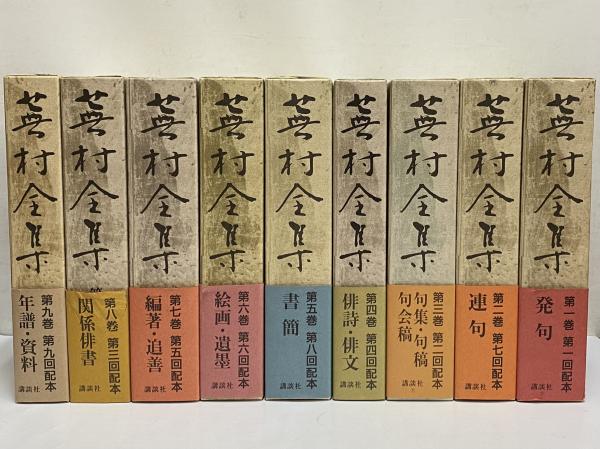 蕪村全集
第九巻 第九回配本
年譜・資料
講談社
蕪村全集
第八巻 第三回配本
関係俳書
講談社
蕪村全集
第七巻 第五回配本
編著・追善
講談社
蕪村全集
第六巻 第六回配本
絵画・遺墨
講談社
蕪村全集
第五巻 第八回配本
書簡
講談社
蕪村全集
第四巻 第四回配本
俳詩・俳文
講談社
蕪村全集
第三巻 第二回配本
句集・句稿
句会稿
講談社
蕪村全集
第二巻 第七回配本
連句
講談社
蕪村全集
第一巻 第一回配本
発句
講談社